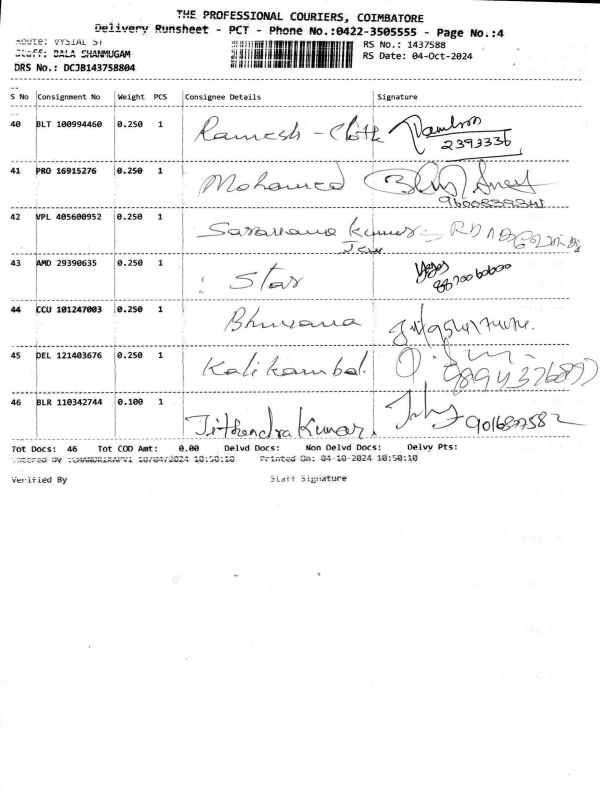 THE PROFESSIONAL COURIERS, COIMBATORE
Delivery Runsheet - PCT - Phone No.:0422-3505555 - Page No.:4
Route: VYSIAL ST
RS No.: 1437588
Staff: BALA SHANMUGAM
RS Date: 04-Oct-2024
DRS No.: DCJB143758804
S No Consignment No Weight PCS Consignee Details Signature
40 BLT 100994460 0.250 1 Ramesh - Cloth
2393336
41 PRO 16915276 0.250 1 Mohamed
42 VPL 405600952 0.250 1 Saravana Kumar
43 AMD 29390635 0.250 1 Star
44 CCU 101247003 0.250 1 Bhuvana
45 DEL 121403676 0.250 1 Kalikambal.
46 BLR 110342744 0.100 1 Jithendra Kumar.
Tot Docs: 46 Tot COD Amt: 0.00 Delvd Docs: Non Delvd Docs: Delvy Pts:
10/04/2024 10:50:10 Printed On: 04-10-2024 10:50:10
Verified By Staff Signature